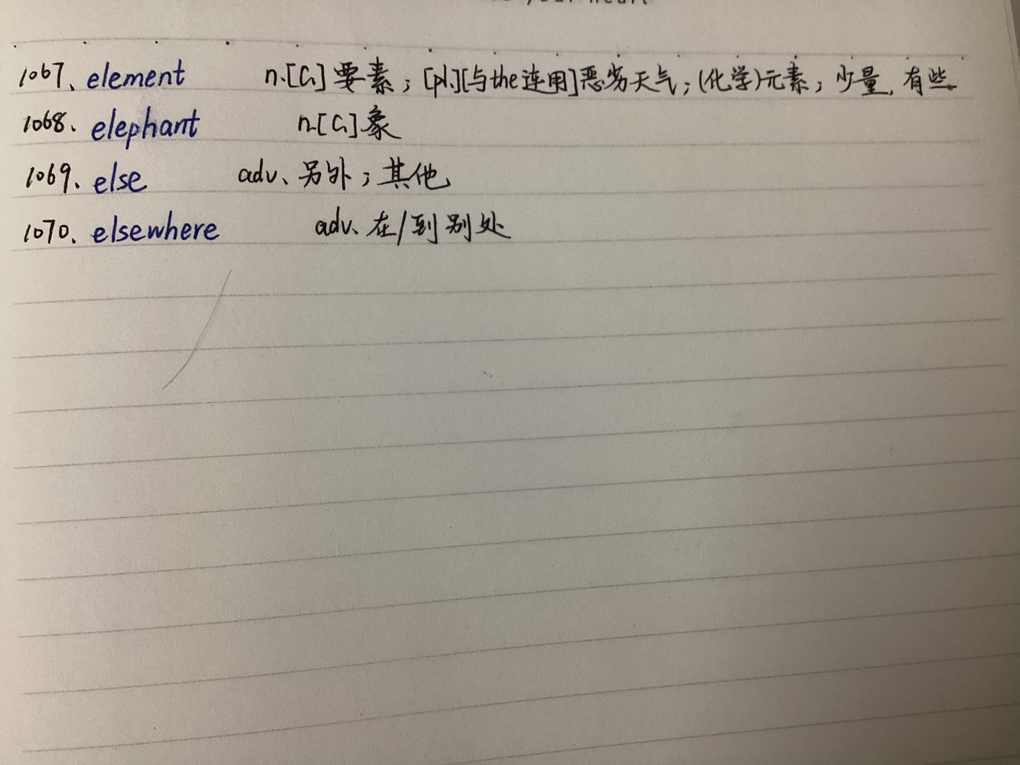 your heart
1067、element n.[C]要素；[pl.][与the连用]恶劣天气；(化学)元素；少量，有些
1068、elephant n.[C]象
1069、else adv、另外；其他
1070、elsewhere adv、在/到别处